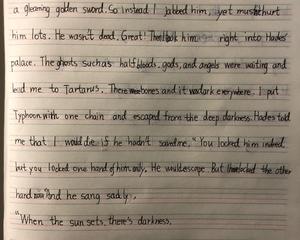 a gleaming golden sword. So instead I jabbed him, yet must hurt
him lots. He wasn't dead. Great! Then I took him right into Hades'
palace. The ghosts such as half bloods, gods, and angels were waiting and
lead me to Tartarus. There were bones and it was dark everywhere. I put
Typhoon with one chain and escaped from the deep darkness. Hades told
me that I would die if he hadn't saved me. "You locked him indeed
but you locked one hand of him only. He would escape. But I locked the other
hand now" And he sang sadly,
"When the sun sets, there's darkness,